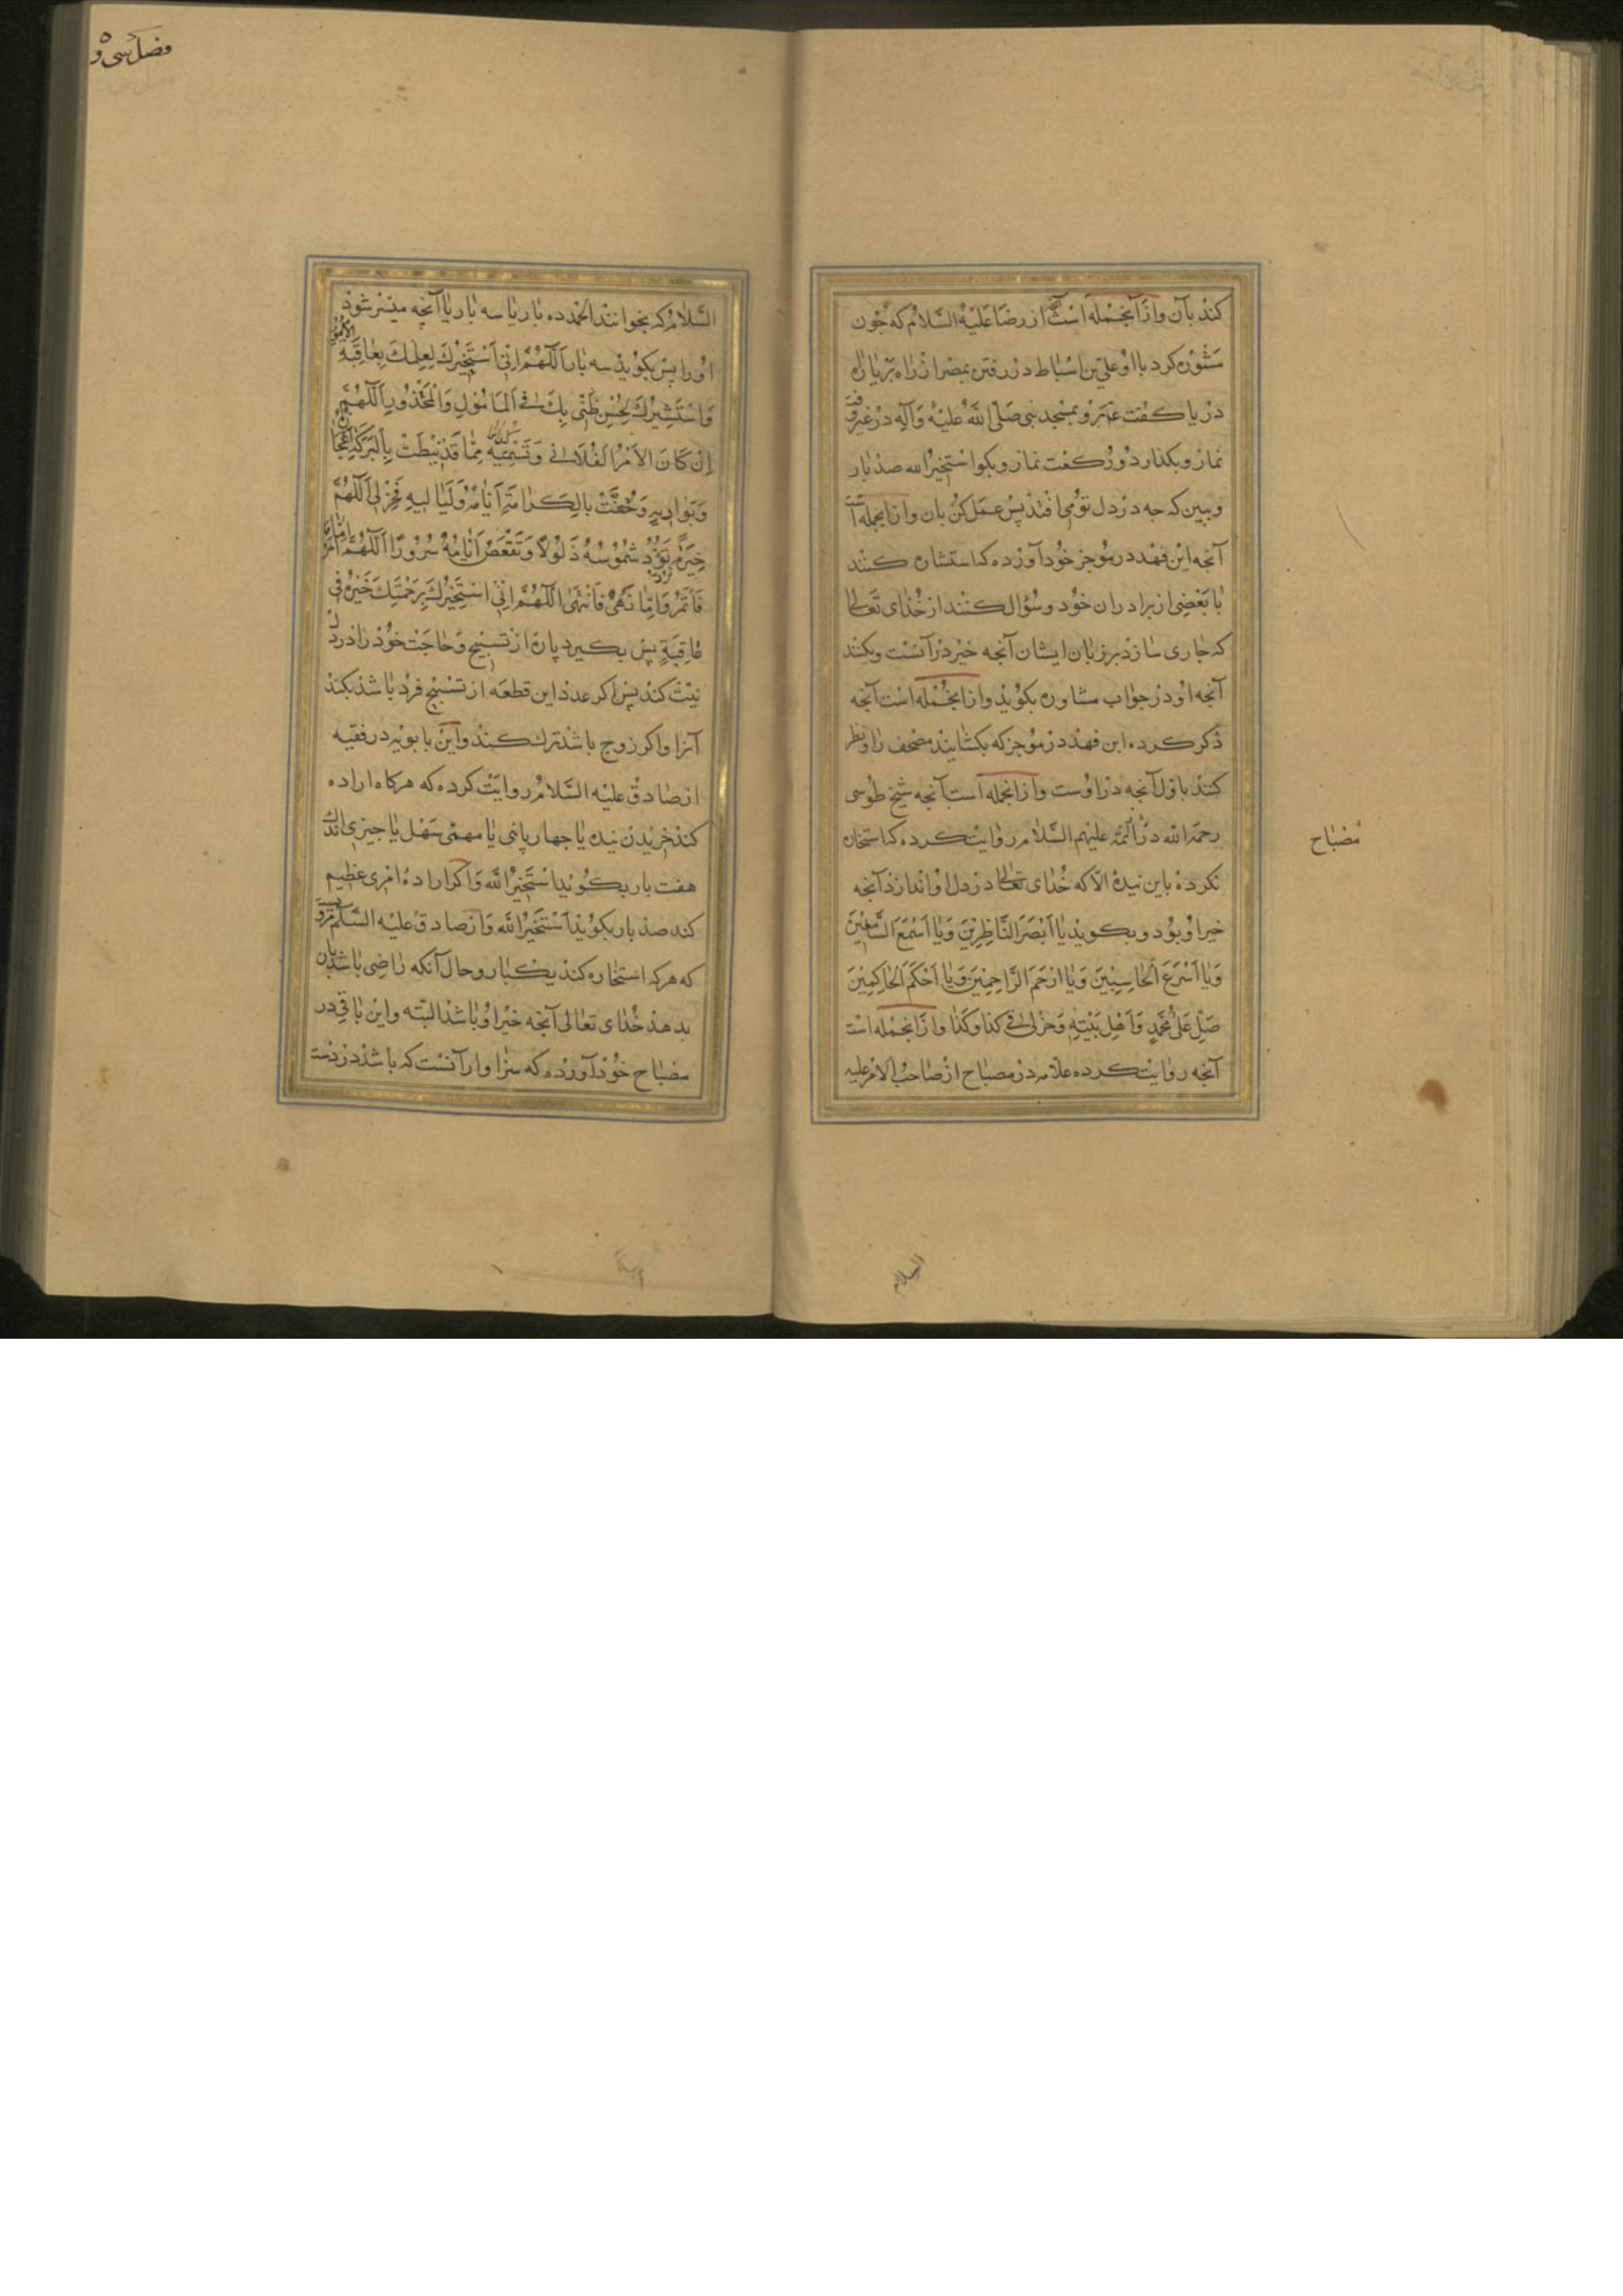 كند بآن و از آنجمله است آنچه از رضا عليه السلام كه چون
مشوره كرد با او علي بن اسباط در رفتن بمصر از راه بر يا از راه
دريا كفت عمر و بمسجد نبي صلى الله عليه وآله در غير وقت
نماز و بكذار دو ركعت نماز و بكو استخير الله صد بار
و ببين كه چه در دل تو مي افتد پس عمل كن بان و از انجمله است
آنچه ابن فهد در موجز خود آورده كه استشاره كنند
با بعضي از برادران خود و سؤال كنند از خداى تعالى
كه جارى سازد بر زبان ايشان آنچه خير در آنست و بكنند
آنچه او در جواب مشاوره بكويد و از انجمله است آنچه
ذكر كرده ابن فهد در موجز كه بكشايند مصحف را و نظر
كنند باول آنچه در اوست و از انجمله است آنچه شيخ طوسى
رحمه الله از ائمه عليهم السلام روايت كرده كه استخاره
نكرده باين بنده الا كه خداى تعالى در دل او اندازد آنچه
خير او بود و بكويد يا ابصر الناظرين ويا اسمع السامعين
ويا اسرع الحاسبين ويا ارحم الراحمين ويا احكم الحاكمين
صل على محمد واهل بيته وخر لي في كذا وكذا و از انجمله است
آنچه روايت كرده علامه در مصباح از صاحب الامر عليه
مصباح
السلام
فصل سى و ٥
السلام كه بخوانند الحمد ده بار يا سه بار يا آنچه ميسر شود
او را پس بكويد سه بار اللهم اني استخيرك لعلمك بعاقبة الامور
واستشيرك لحسن ظني بك في المأمول والمحذور اللهم
ان كان الامر الفلاني وتسميه مما قد نيطت بالبركة اعجازه
وبواديه وحفت بالكرامة ايامه ولياليه فخر لي اللهم
خيرة ترد شموسه ذلولا وتقعض ايامه سرورا اللهم اما امر
فأتمر واما نهي فانتهي اللهم اني استخيرك برحمتك خيرة في
عافية پس بكيرد پاره از تسبيح و حاجت خود را در دل
نيت كند پس اكر عدد اين قطعه از تسبيح فرد باشد بكند
آنرا و اكر زوج باشد ترك كند و ابن بابويه در فقيه
از صادق عليه السلام روايت كرده كه هركاه اراده
كند خريدن بنده يا چهار پائى يا مهمى سهل يا چيزى اندك
هفت بار بكويد استخير الله و اكر اراده امرى عظيم
كند صد بار بكويد استخير الله و از صادق عليه السلم مرويست
كه هركه استخاره كند يكبار و حال آنكه راضى باشد بان
بدهد خداى تعالى آنچه خير او باشد البته و ابن باقي در
مصباح خود آورده كه سزاوار آنست كه باشد در دست